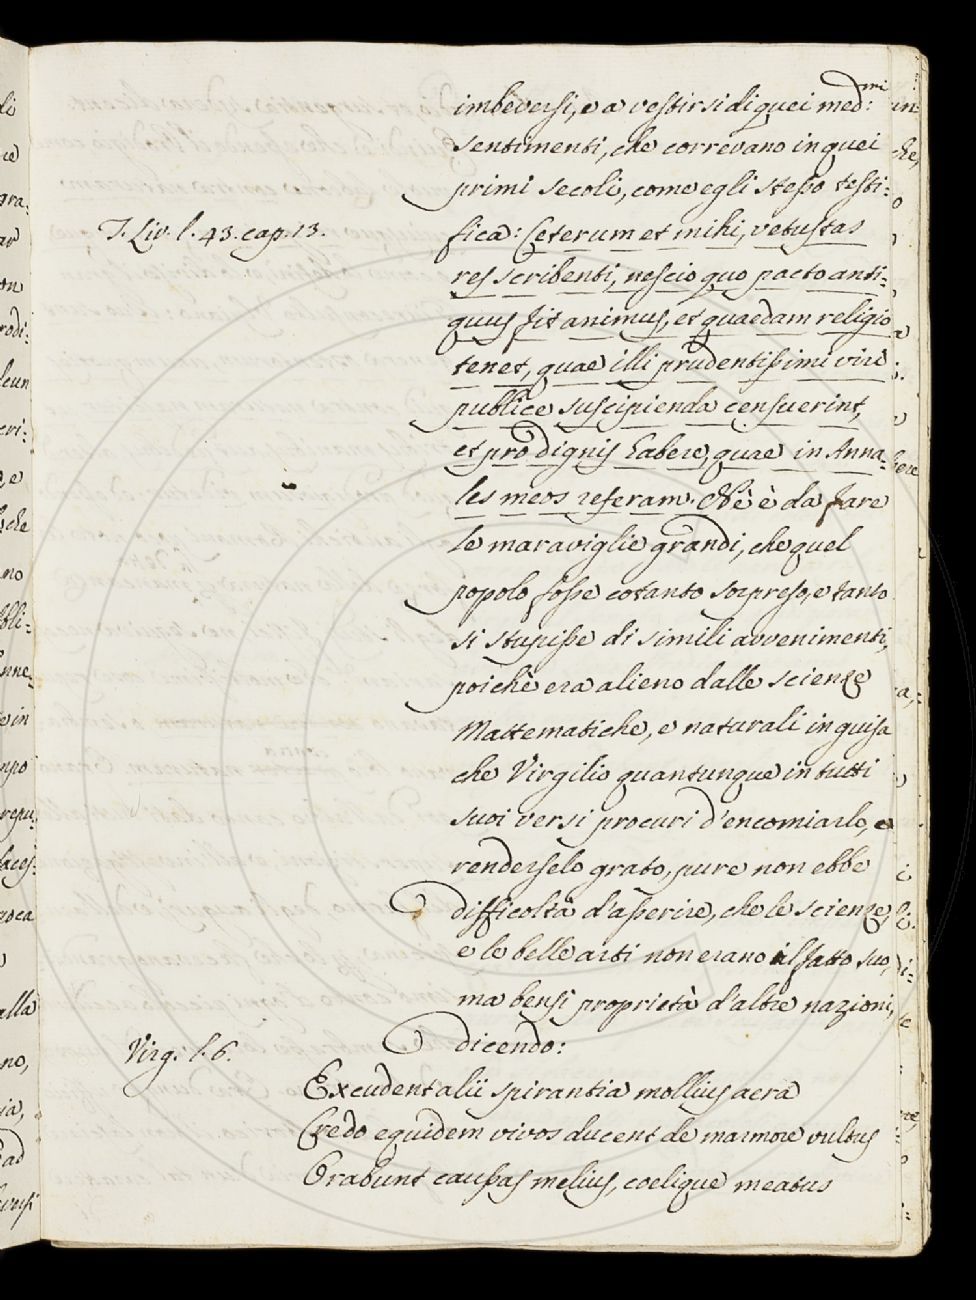 imbeversi, e a vestirsi di quei med:mi
sentimenti, che correvano in quei
primi secoli, come egli stesso testi:
T. Liv. l. 43. cap. 13.
fica: Ceterum et mihi, vetustas
res scribenti, nescio quo pacto anti:
quus fit animus, et quaedam religio
tenet, quae illi prudentissimi viri
publice suscipienda censuerint,
et pro dignis habere, quae in Anna:
les meos referam. Nè è da fare
le maraviglie grandi, che quel
popolo fosse cotanto sorpreso, e tanto
si stupisse di simili avvenimenti,
poichè era alieno dalle scienze
Mattematiche, e naturali in guisa
che Virgilio quantunque in tutti
suoi versi procuri d'encomiarlo, e
renderselo grato, pure non ebbe
difficoltà d'asserire, che le scienze,
e le belle arti non erano il fatto suo,
ma bensì proprietà d'altre nazioni,
dicendo:
Virg. l. 6.
Excudent alii spirantia mollius aera
Credo equidem vivos ducent de marmore vultus
Orabunt caussas melius, coelique meatus